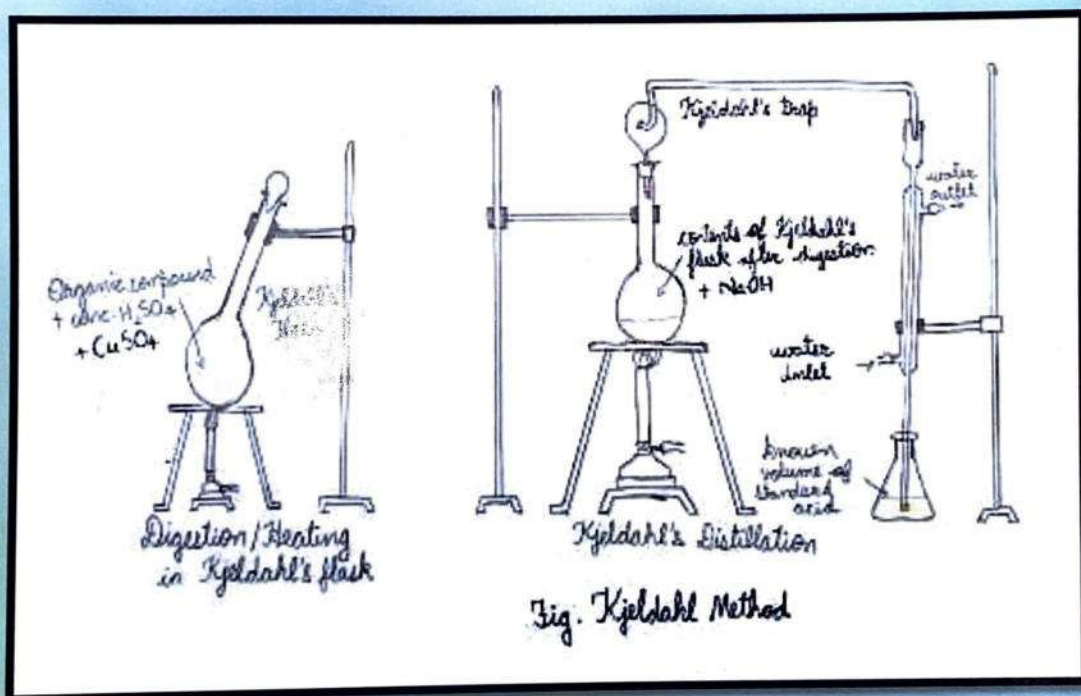 Organic compound
+ conc. H2SO4
+ CuSO4
Kjeldahl's
Digestion/Heating
in Kjeldahl's flask
Kjeldahl's trap
contents of Kjeldahl's
flask after digestion
+ NaOH
water
outlet
water
inlet
known
volume of
standard
acid
Kjeldahl's Distillation
Fig. Kjeldahl Method